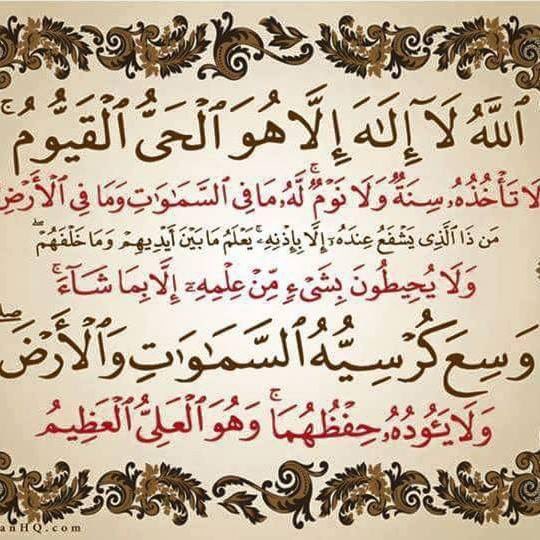 ٱللَّهُ لَآ إِلَٰهَ إِلَّا هُوَ ٱلْحَىُّ ٱلْقَيُّومُ ۚ
لَا تَأْخُذُهُۥ سِنَةٌ وَلَا نَوْمٌ ۚ لَّهُۥ مَا فِى ٱلسَّمَٰوَٰتِ وَمَا فِى ٱلْأَرْضِ
مَن ذَا ٱلَّذِى يَشْفَعُ عِندَهُۥٓ إِلَّا بِإِذْنِهِۦ ۚ يَعْلَمُ مَا بَيْنَ أَيْدِيهِمْ وَمَا خَلْفَهُمْ ۖ
وَلَا يُحِيطُونَ بِشَىْءٍ مِّنْ عِلْمِهِۦٓ إِلَّا بِمَا شَآءَ ۚ
وَسِعَ كُرْسِيُّهُ ٱلسَّمَٰوَٰتِ وَٱلْأَرْضَ ۖ
وَلَا يَـُٔودُهُۥ حِفْظُهُمَا ۚ وَهُوَ ٱلْعَلِىُّ ٱلْعَظِيمُ